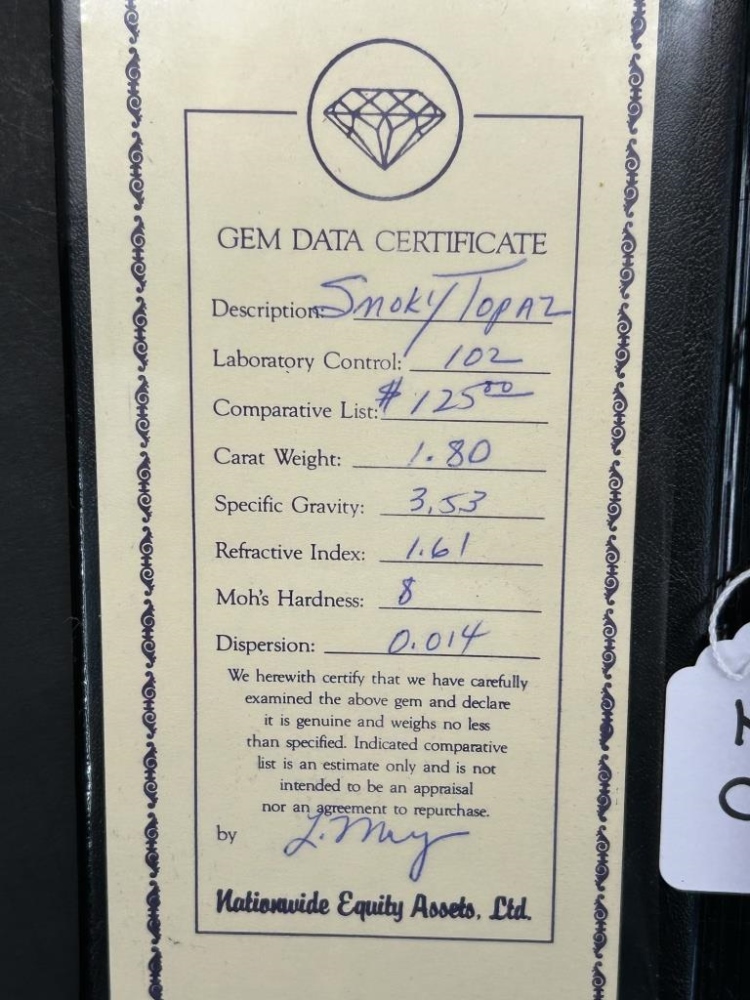 GEM DATA CERTIFICATE
Description: Smoky Topaz
Laboratory Control: 102
Comparative List: $125.00
Carat Weight: 1.80
Specific Gravity: 3.53
Refractive Index: 1.61
Moh's Hardness: 8
Dispersion: 0.014
We herewith certify that we have carefully
examined the above gem and declare
it is genuine and weighs no less
than specified. Indicated comparative
list is an estimate only and is not
intended to be an appraisal
nor an agreement to repurchase.
by L. May
Nationwide Equity Assets, Ltd.